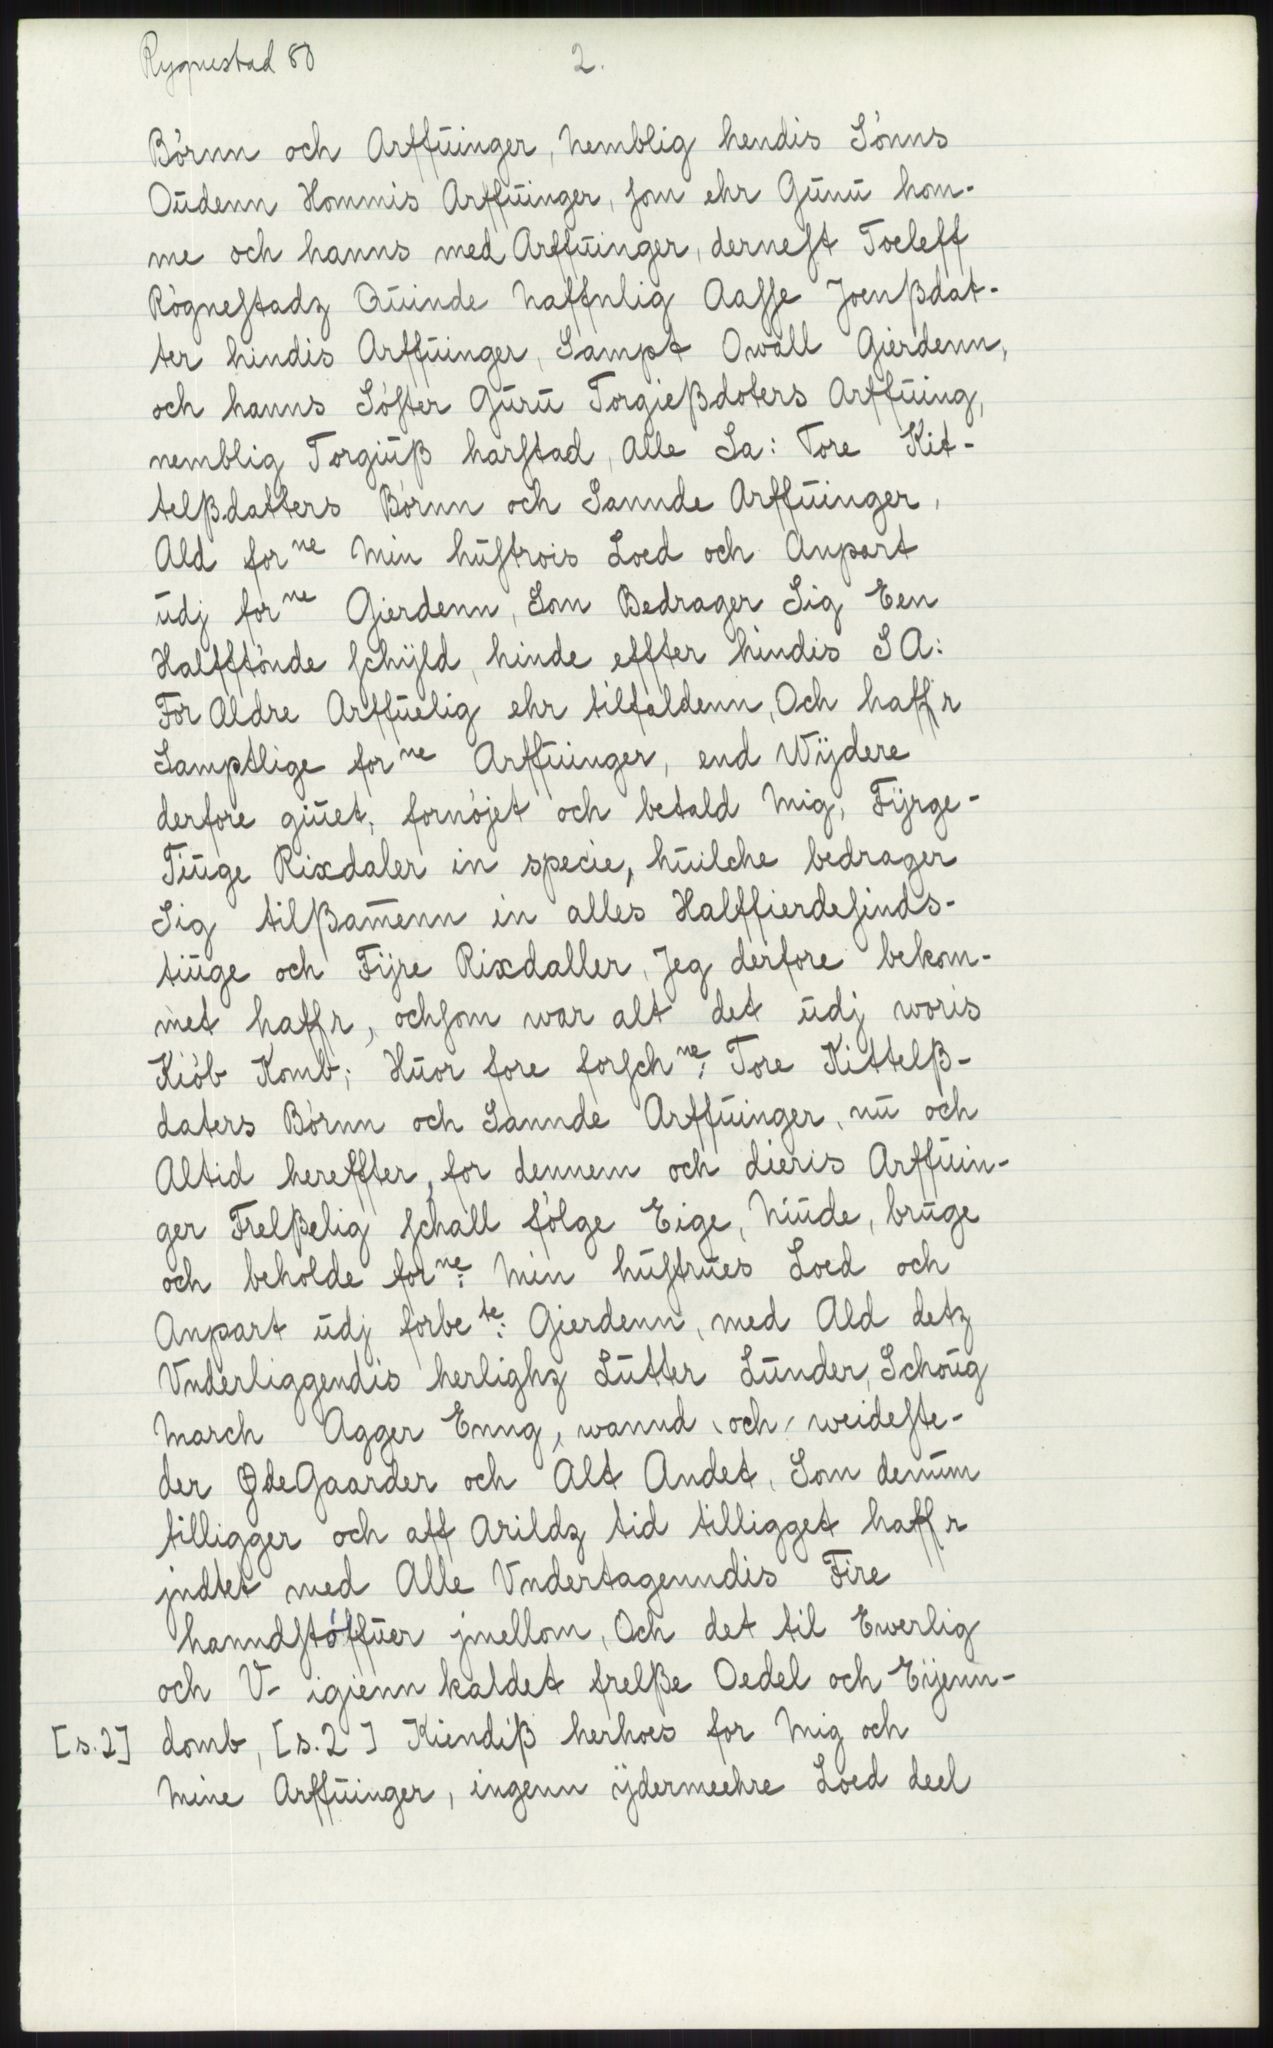 Rygnestad 80 2.
Börnn och Arffüinger, Nemblig hendis Sönns
Oüdenn Hommis Arffüinger, som ehr Günü hom-
me och hanns med Arffüinger, dernest Toeleff
Rögnestadz Qüinde Naffnlig Aasse Joenßdat-
ter hindis Arffüinger, Sampt Owall Gierdenn,
och hanns Söster Gürü Torgießdoters Arffüing,
nemblig Torgiüß harstad, Alle Sa: Tore Kit-
telßdatters Börnn och Sannde Arffüinger,
Ald forne Min hüstrois Loed och Anpart
üdj forne Gierdenn, Som Bedrager Sig Een
Halfftönde schÿld, hinde effter hindis SA:
For Aldre Arffüelig ehr tilfaldenn, Och haffr
Samptlige forne Arffüinger, end Wÿdere
derfore giüet, fornöjet och betald Mig, Fÿrge-
Tiüge Rixdaler in specie, hüilche bedrager
Sig tilßam̄enn in alles Halffierdesinds-
tiüge och Fÿre Rixdaller, Jeg derfore bekom-
met haffr, ochsom war alt det üdj woris
Kiöb Komb; Hüor fore forschne: Tore Kittelß-
daters Börnn och Sannde Arffüinger, nü och
Altid hereffter, for dennem och dieris Arffüin-
ger Frelßelig schall fölge Eige, Niüde, brüge
och beholde forne: Min hüstrües Loed och
Anpart üdj forbete: Gierdenn, med Ald detz
Vnderliggendis herlighz Lutter Lünder, Schoüg
March Agger Enng, wannd och weideste-
der ØdeGaarder och Alt Andet, Som denüm
tilligger och aff Arildz tid tilligget haffr
jndtet med Alle Vndertagenndis Fire
hanndstöffüer jmellom, Och det til Ewerlig
och V- igienn kaldet frelße Oedel och Eÿenn-
[s.2] domb, [s.2] Kiendiß herhoes for Mig och
Mine Arffüinger, ingenn ÿdermeehre Loed deel